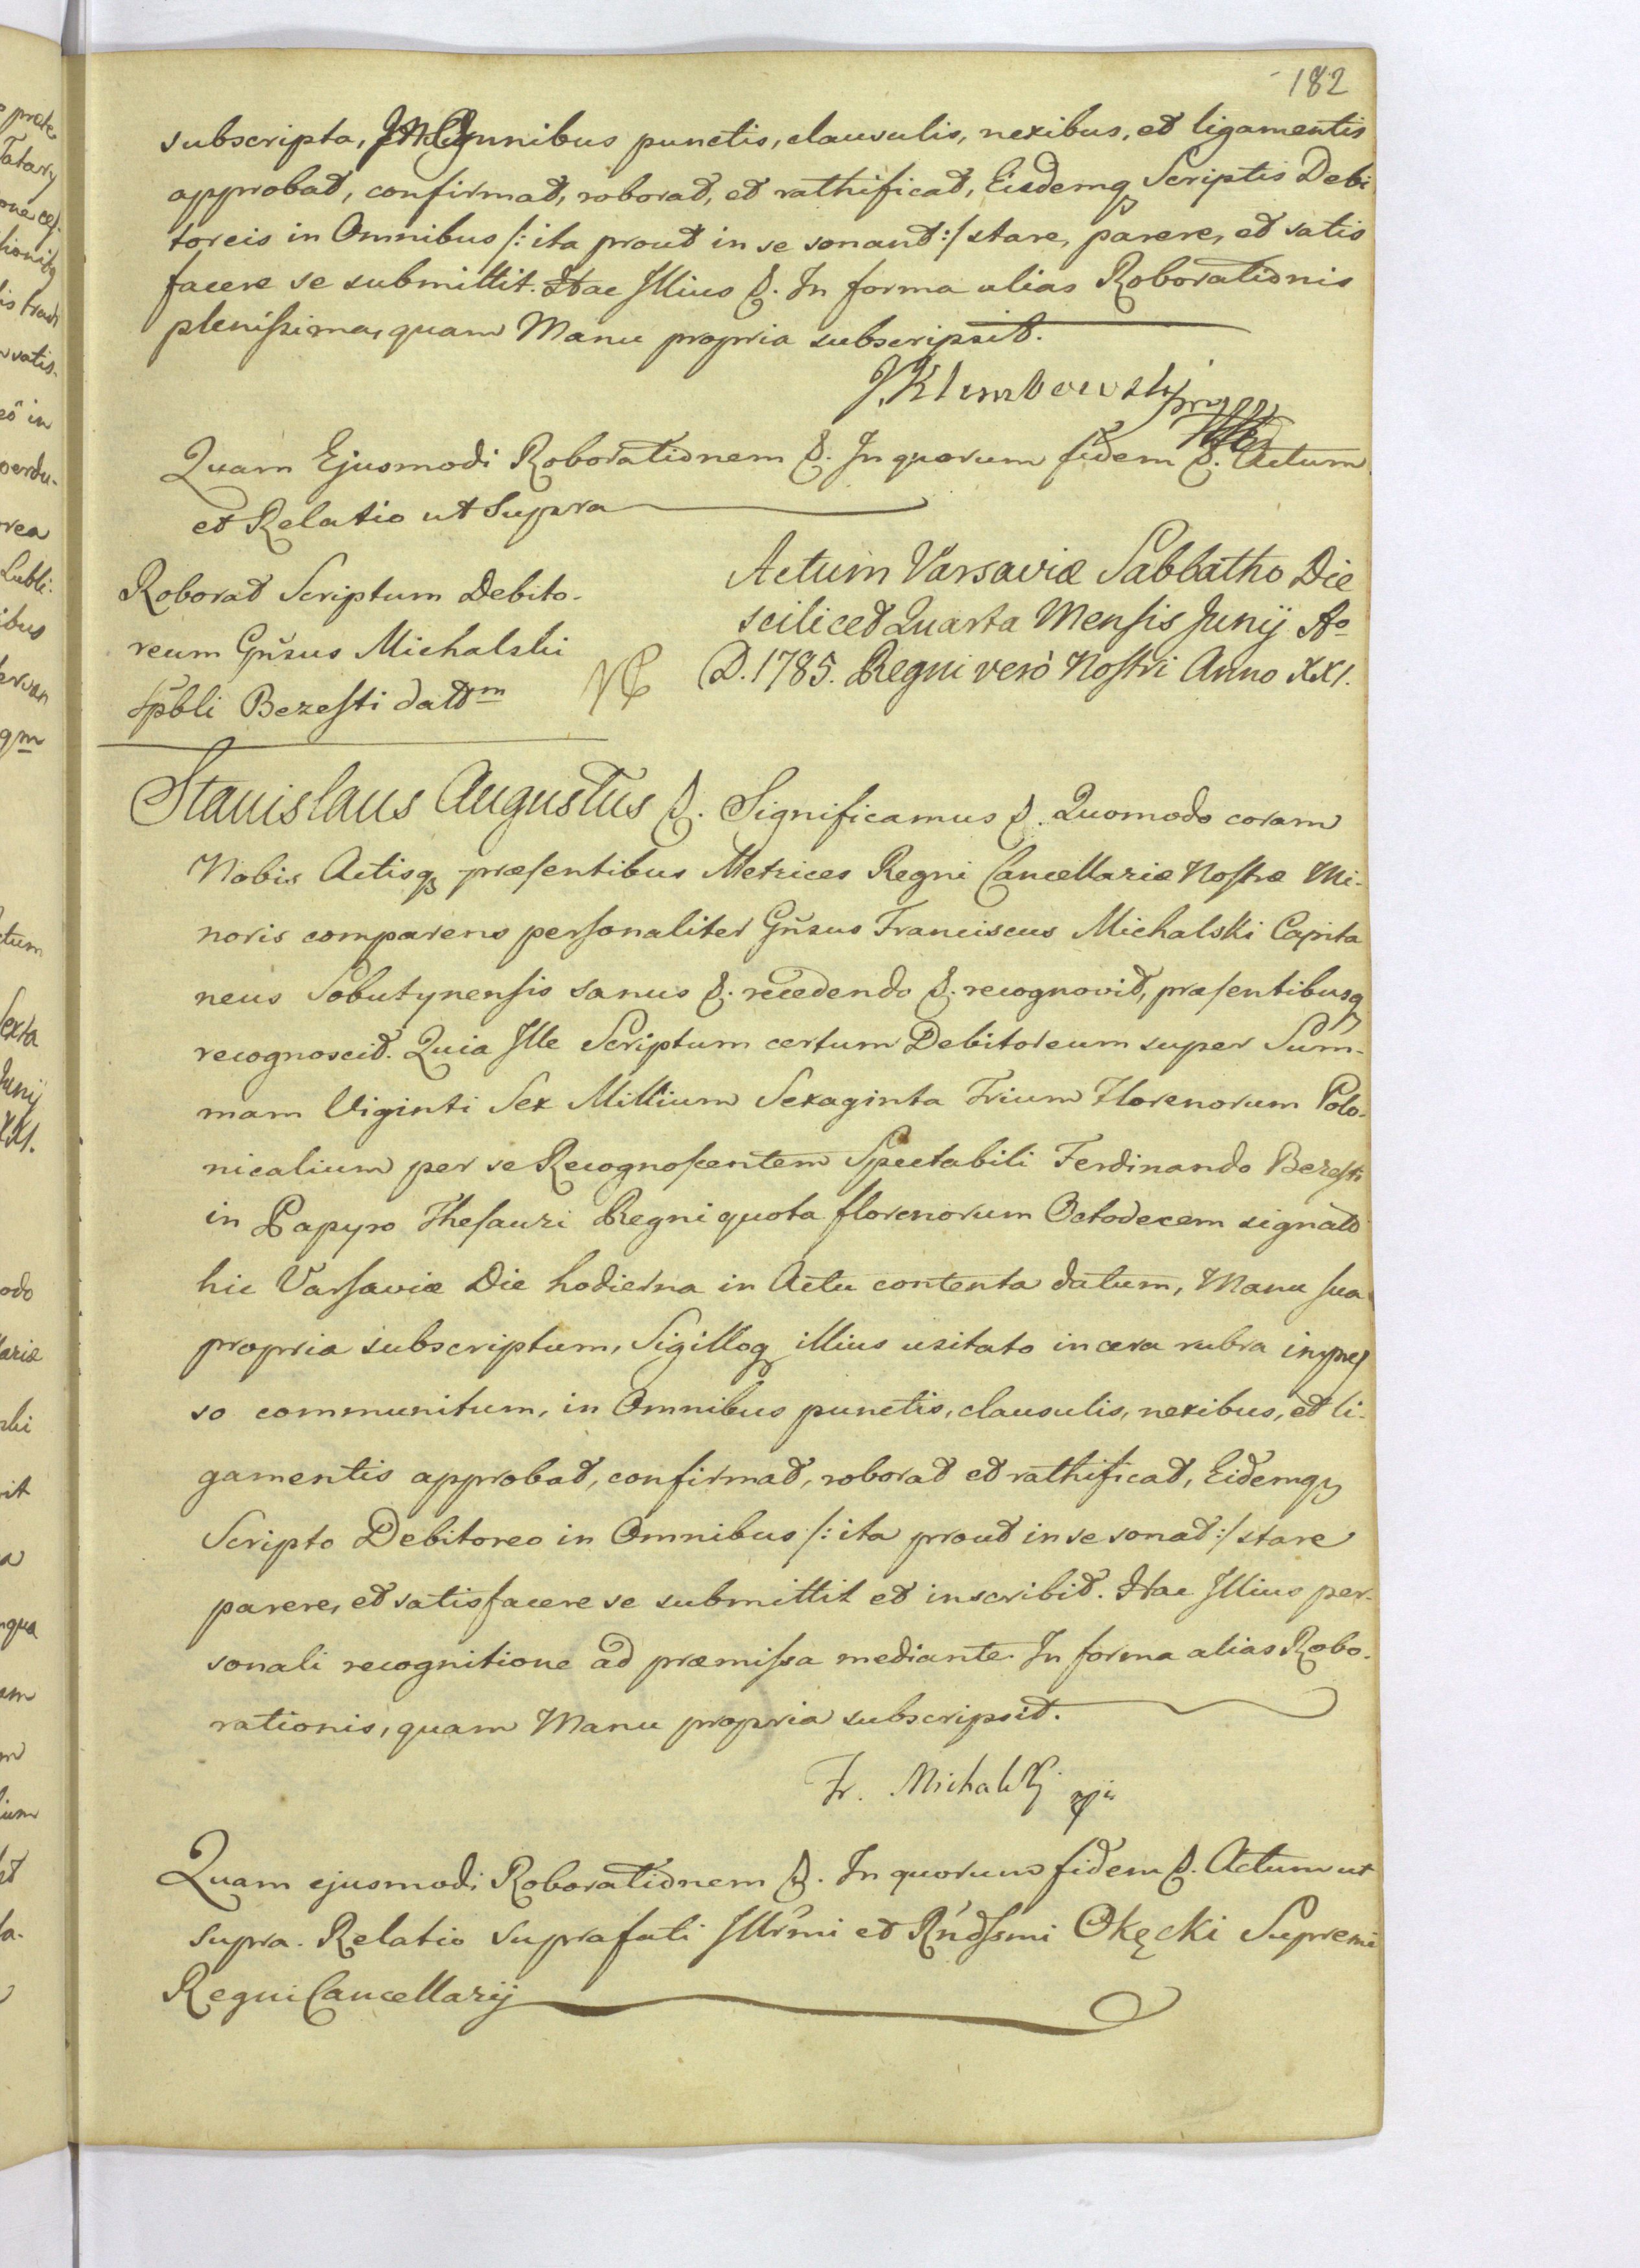 182
subscripta, in Omnibus punctis, clausulis, nexibus, et ligamentis
approbat, confirmat, roborat, et rathificat, Eisdemq Scriptis Debi
toreis in Omnibus /: ita prout in se sonant :/ stare, parere, et satis
facere se submittit. Hac Illius &. In forma alias Roborationis
plenissima, quam Manu propria subscripsit.
J. Klembowski mpp
Quam Ejusmodi Roborationem &. In quorum fidem &. Actum
et Relatio ut Supra
Roborat Scriptum Debito-
reum Gnsus Michalski
Spbli Bezesti dattm
Actum Varsaviæ Sabbatho Die
scilicet Quarta Mensis Junij Ao
D. 1785. Regni verò Nostri Anno XXI.
Stanislaus Augustus &. Significamus &. Quomodo coram
Nobis Actisq præsentibus Metrices Regni Cancellariæ Nostræ Mi-
noris comparens personaliter Gnsus Franciscus Michalski Capita
neus Sobutynensis sanus &. recedendo &. recognovit, præsentibusq
recognoscit. Quia Ille Scriptum certum Debitoreum super Sum-
mam Viginti Sex Millium Sexaginta Trium Florenorum Polo-
nicalium per se Recognoscentem Spectabili Ferdinando Bezesti
in Papyro Thesauri Regni quota florenorum Octodecem signato
hic Varsaviæ Die hodierna in Actu contenta datum, Manu sua
propria subscriptum, Sigilloq illius usitato in cera rubra impres
so communitum, in Omnibus punctis, clausulis, nexibus, et li-
gamentis approbat, confirmat, roborat et rathificat, Eidemq
Scripto Debitoreo in Omnibus /: ita prout in se sonat :/ stare
parere, et satisfacere se submittit et inscribit. Hac Illius per-
sonali recognitione ad præmissa mediante. In forma alias Robo-
rationis, quam Manu propria subscripsit.
Fr. Michalski
Quam ejusmodi Roborationem &. In quorum fidem &. Actum ut
supra. Relatio suprafati Illrmi et Rndssmi Okęcki Supremi
Regni Cancellarij